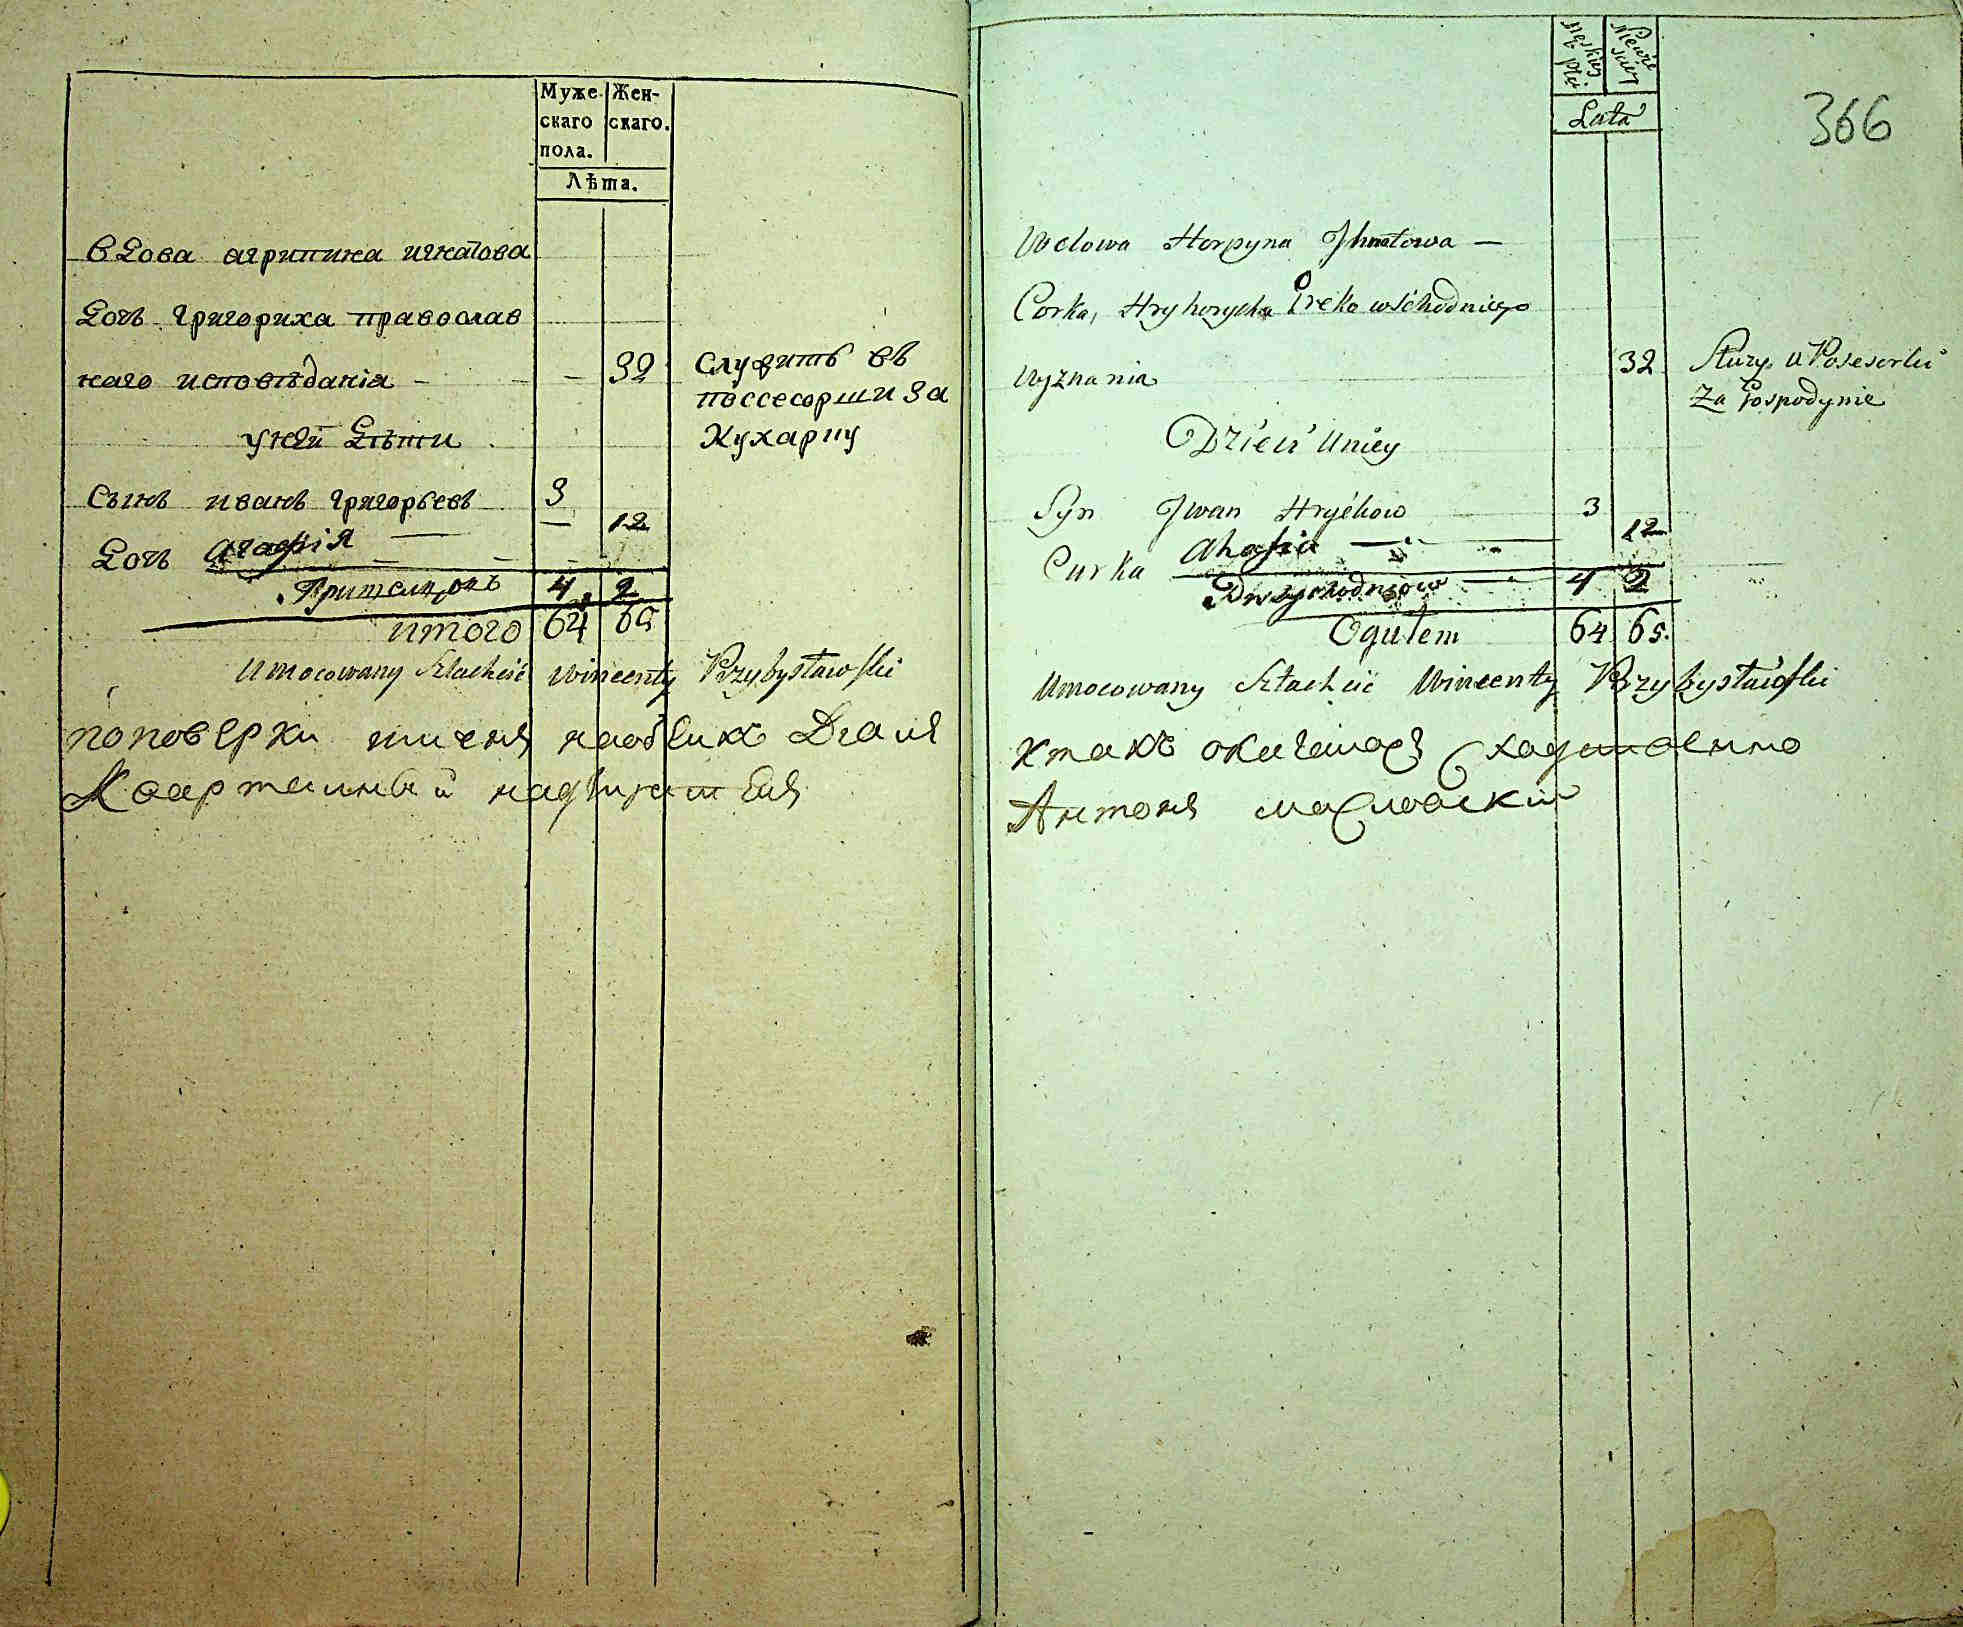 Муже
скаго
пола.
Жен-
скаго.
Лѣта.
вдова агрипина игнатова
дочь григориха православ
наго исповѣданія - - - 32
Служитъ въ
поссесорши за
Кухарку
уней дѣти
Сынъ иванъ григорьевъ 3
дочь агафія — — 12
4 2
итого 64 65
Umocowany Szlachcic Wincenty Przybysławski
поповерки
Квартальный надзиратель
366
Męskiey płci
Niewieściey
Lata
Wdowa Horpyna Ihnatowa —
Corka, Hryhorycha Greko wschodniego
Wyznania 32
Służy u Posesorki
Za Gospodynie
Dzieci Uniey
Syn Iwan Hryckow 3
Curka Ahafia — 12
Przychodniow — 4 2
Ogułem 64 65.
Umocowany Szlachcic Wincenty Przybysławski
Антонъ